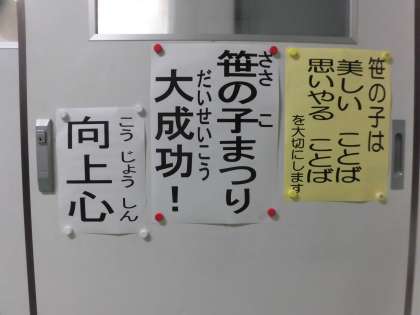 笹の子は
美しい ことば
思いやる ことば
を大切にします
ささ こ
笹の子まつり
だいせいこう
大成功！
こう じょう しん
向上心